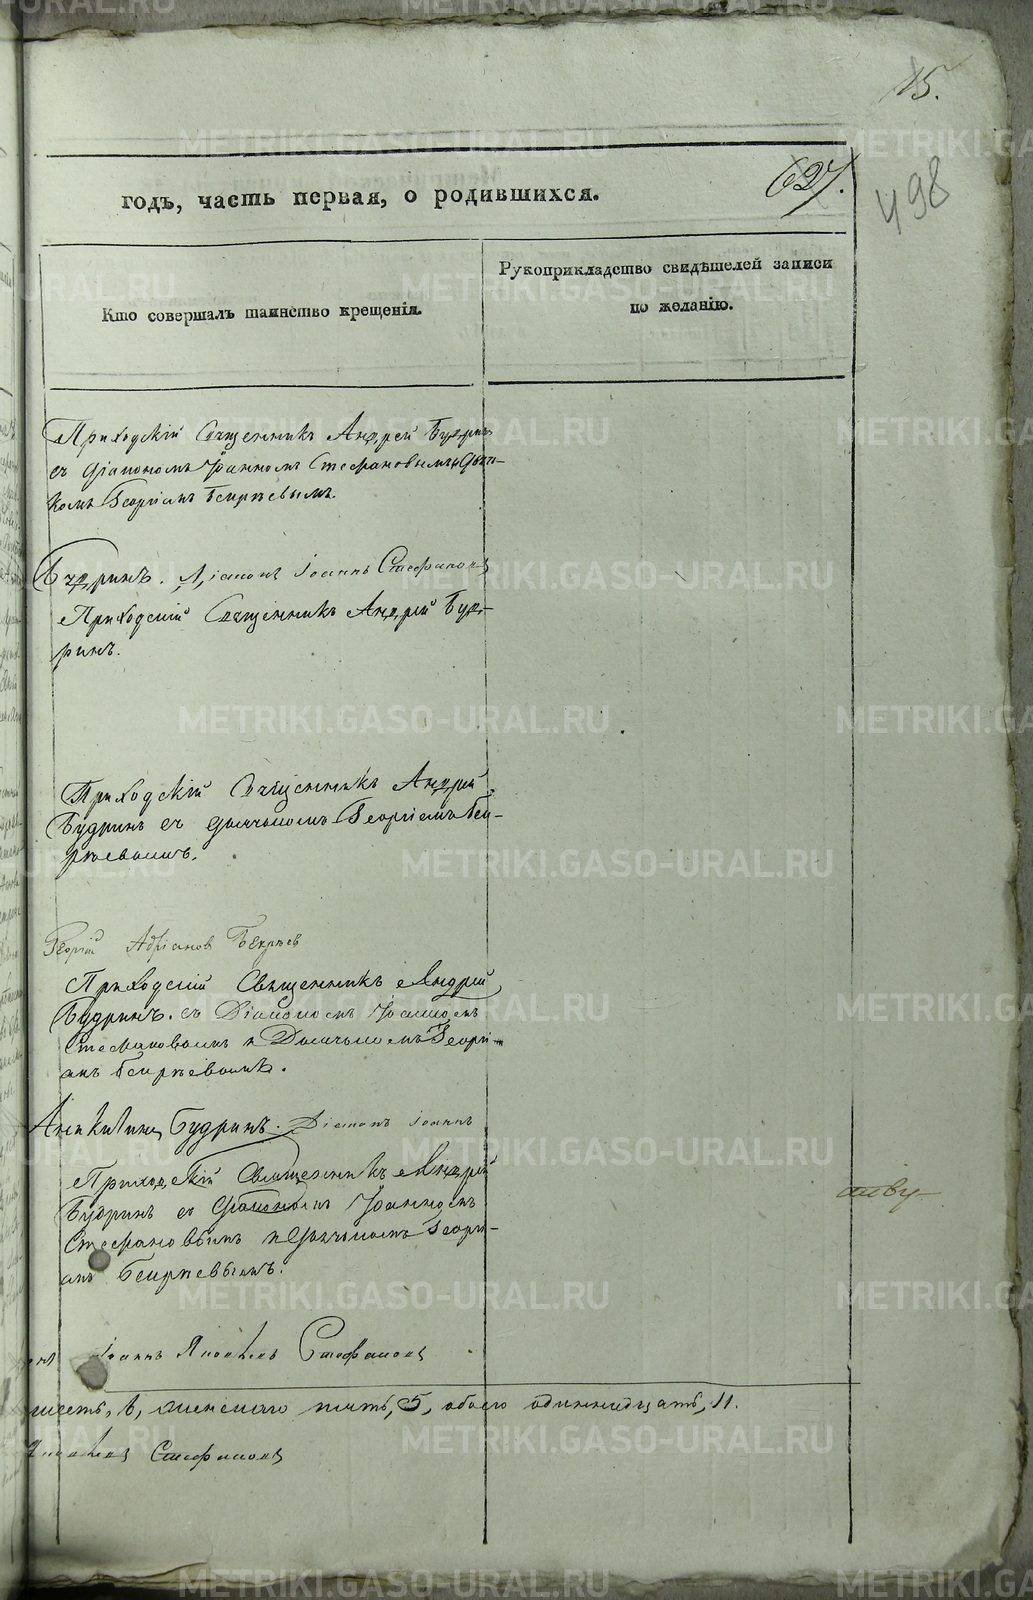 15.
627.
498
годъ, часть первая, о родившихся.
Кто совершалъ таинство крещенія.
Рукоприкладство свидѣтелей записи
по желанію.
Приходскій Священникъ Андрей Будринъ
съ Діакономъ Іоанномъ Стефановымъ и Дьяч-
комъ Георгіемъ Бекрѣевымъ.
Будринъ. Діаконъ Іоаннъ Стефановъ
Приходскій Священникъ Андрей Буд-
ринъ.
Приходскій Священникъ Андрей
Будринъ съ дьячькомъ Георгіемъ Бек-
рѣевымъ.
Георгій Адріановъ Бекрѣев
Приходскій Священникъ Андрей
Будринъ. съ Діакономъ Іоанномъ
Стефановымъ и Дьячькомъ Георгі-
емъ Бекрѣевымъ.
Будринъ. Діаконъ Іоаннъ
Приходскій Священникъ Андрей
Будринъ съ Діакономъ Іоанномъ
Стефановымъ и Дьячькомъ Георгі-
емъ Бекрѣевымъ.
Іоаннъ Яковлевъ Стефановъ
шесть, 6, женскаго пять, 5, обоего одиннадцать, 11.
Яковлевъ Стефановъ
METRIKI.GASO-URAL.RU